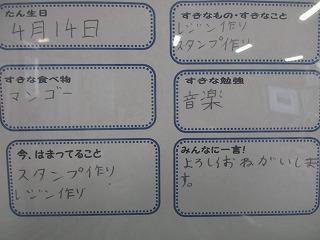 たん生日
4月14日
すきなもの・すきなこと
レジン作り
スタンプ作り
すきな食べ物
マンゴー
すきな勉強
音楽
今、はまってること
スタンプ作り
レジン作り
みんなに一言!
よろしくおねがいしま
す。